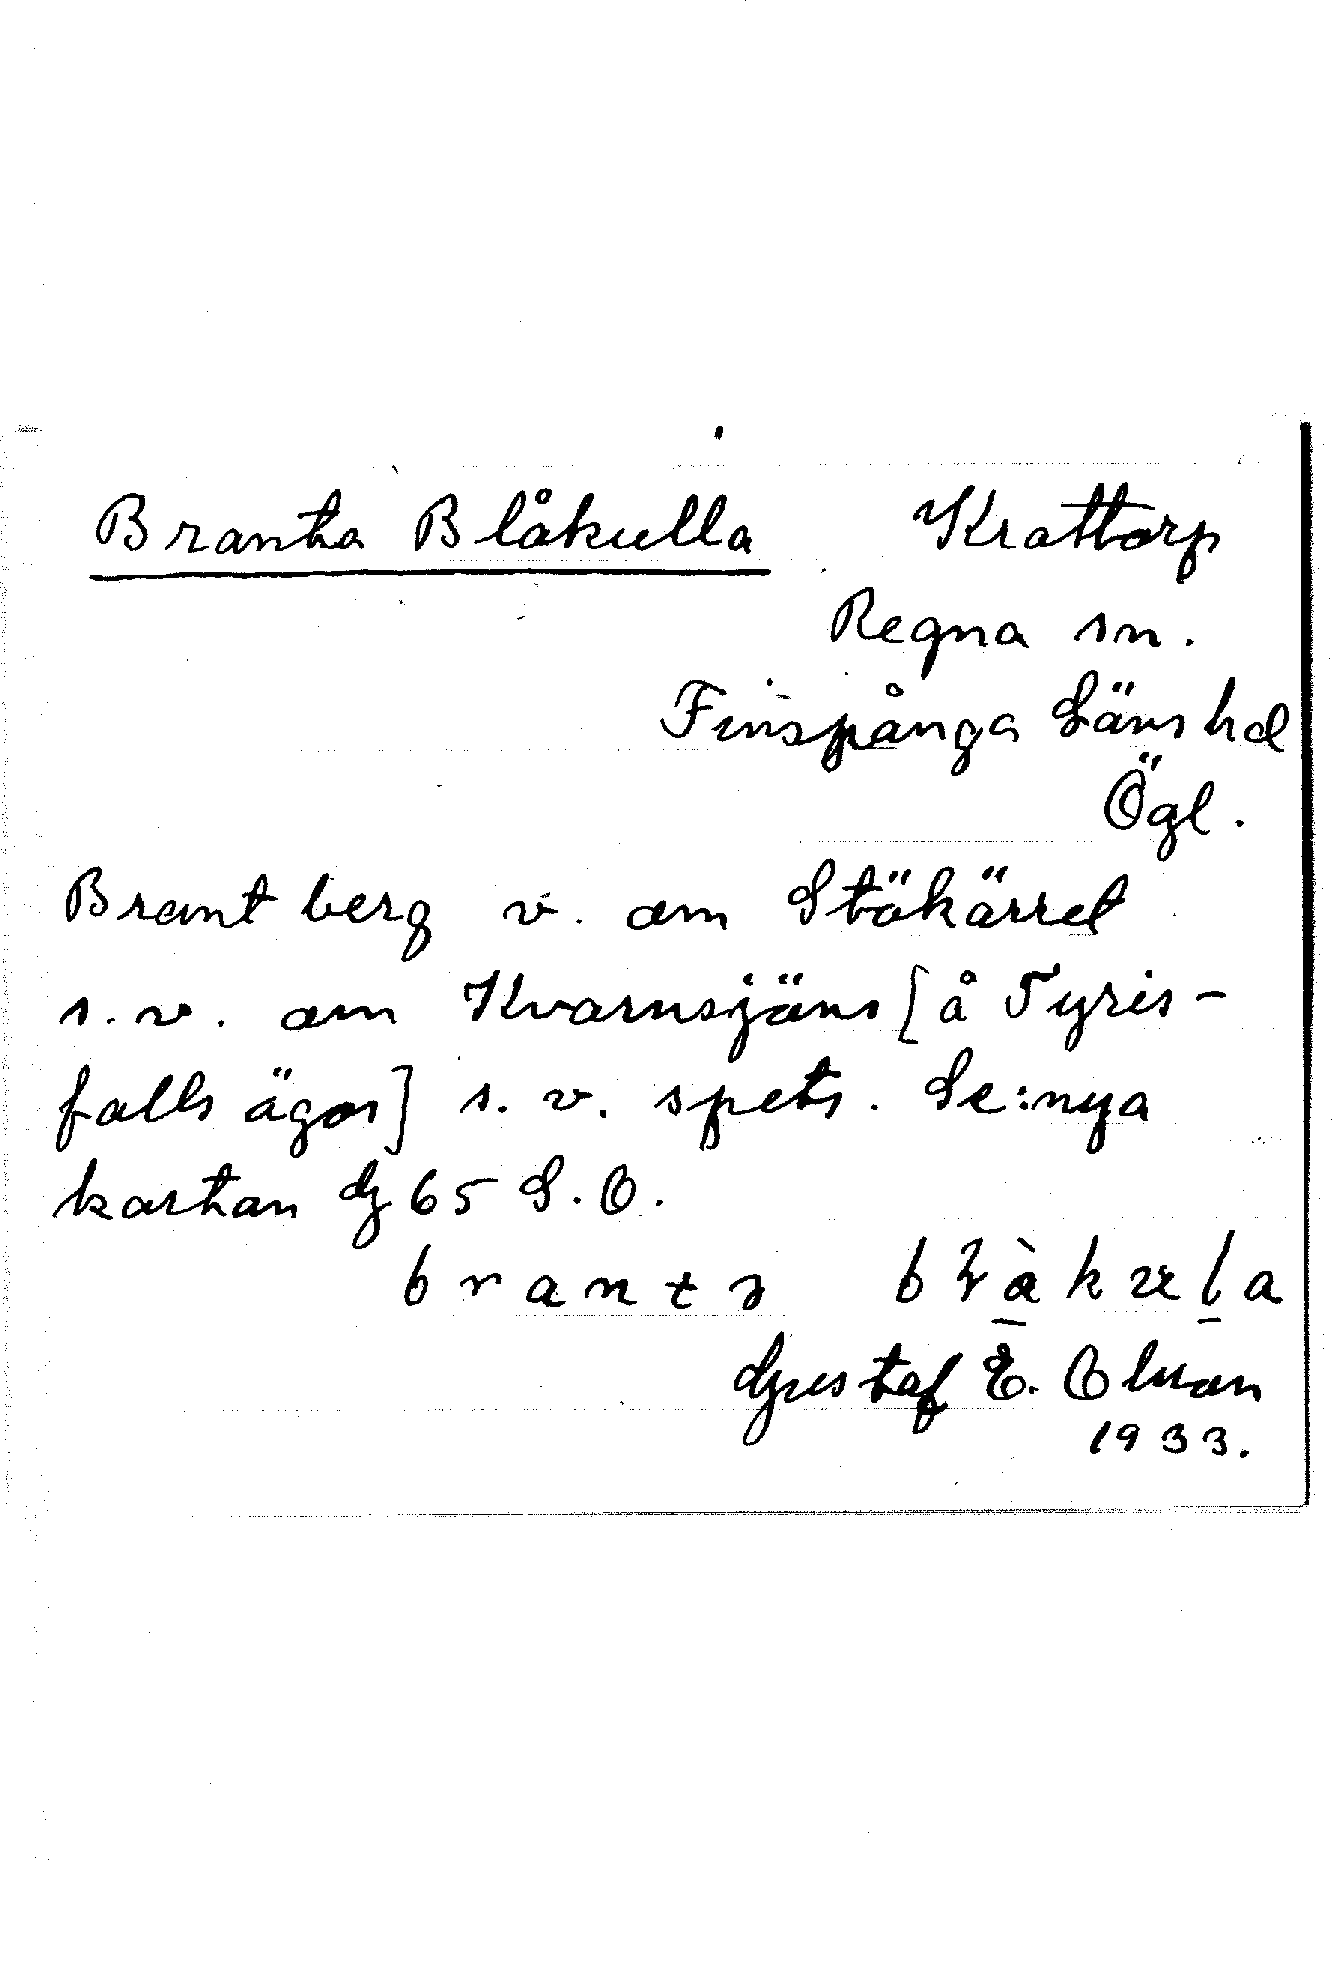 Branta Blåkulla Krattorp
Regna sn.
Finspånga Läns hd
Ögl.
Brant berg v. om Stökärret
s.v. om Kvarnsjöns [å Tyris-
falls ägor] s. v. spets. Se: nya
kartan dz 65 S.O.
Gustaf E. Olsson
1933.